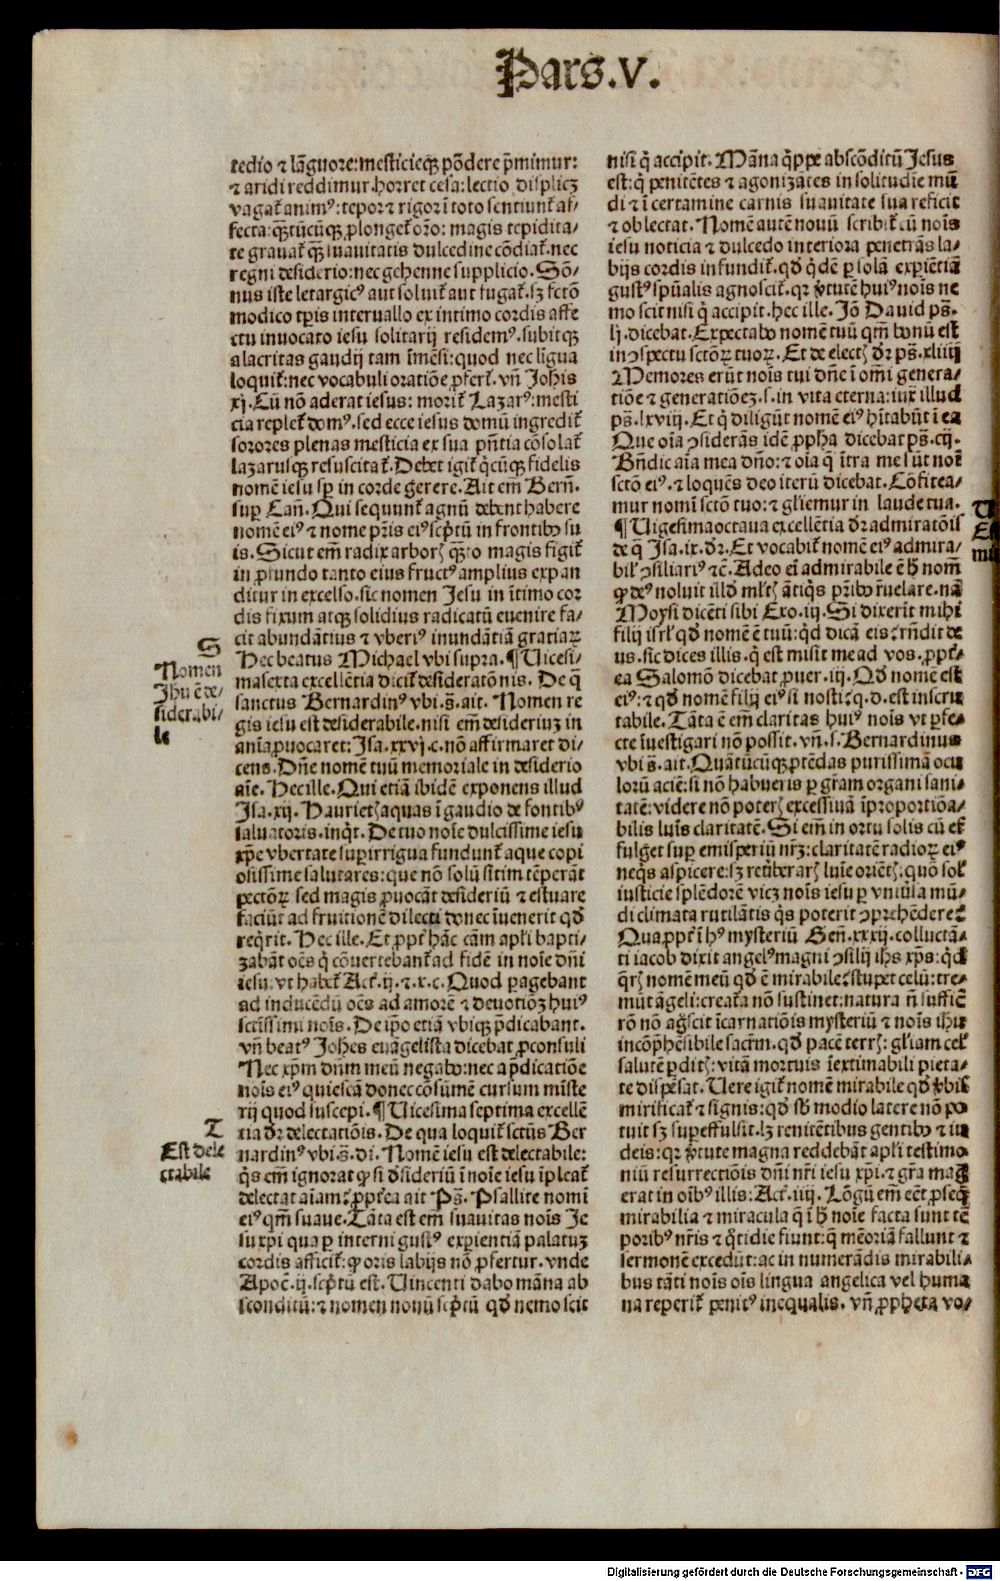 Pars.V.
tedio ⁊ lãguore:mesticieqʒ põdere p̃mimur:
⁊ aridi reddimur.horret cesa:lectio displicʒ
vagat᷑ animꝰ:tepor ⁊ rigor ĩ toto sentiunt᷑ af/
fecta:q̃tũcũqʒ ꝓlonget᷑ or̃o: magis tepidita/
te grauat᷑ q̃ʒ suauitatis dulcedine cõdiat᷑.nec
regni desiderio:nec gehenne supplicio.Sõ/
nus iste letargicꝰ aut soluit᷑ aut fugat᷑.sʒ fctõ
modico tp̃is interuallo ex intimo cordis affe
ctu inuocato iesu solitarij residemꝰ.subitqʒ
alacritas gaudij tam ĩmẽsi:quod nec lĩgua
loquit᷑:nec vocabuli oratiõe ꝓfert᷑.vñ Johis
xj.Cũ nõ aderat iesus: morit᷑ Lazarꝰ:mesti
cia replet᷑ domꝰ.sed ecce iesus domũ ingredit᷑
sorores plenas mesticia ex sua pñtia cõsolat᷑
lazarusqʒ resuscitat᷑.Debet igit᷑ q̃cũqʒ fidelis
nomẽ iesu sp̃ in corde gerere.Ait em̃ Berñ.
sup Cañ.Qui sequunt᷑ agnũ debent habere
nomẽ eiꝰ ⁊ nome p̃ris eiꝰ scp̃tũ in frontibꝰ su
is.Sicut em̃ radix arborꝭ q̃ʒto magis figit᷑
in ꝓfundo tanto eius fructꝰ amplius expan
ditur in excelso.sic nomen Jesu in ĩtimo cor
dis fixum atqʒ solidius radicatũ euenire fa/
cit abundãtius ⁊ vberiꝰ inundãtiã gratiaꝝ
Hec beatus Michael vbi supra.¶Uicesi/
masexta excellẽtia dicit᷑ desideratõnis. De q̃
sanctus Bernardinꝰ vbi.s̃.ait. Nomen re
gis iesu est desiderabile.nisi em̃ desideriuʒ in
anĩa ꝓuocaret:Jsa.xxvj.c.nõ affirmaret di/
cens.Dñe nomẽ tuũ memoriale in desiderio
aĩe.Hec ille.Qui etiã ibidẽ exponens illud
Jsa.xij. Haurietꝭ aquas ĩ gaudio de fontibꝰ
saluatoris.inq̃t.De tuo noĩe dulcissime iesu
xp̃e vbertate superirrigua fundunt᷑ aque copi
osissime salutares: que nõ solũ sitim tẽperãt
pectoꝝ sed magis ꝓuocãt desideriũ ⁊ estuare
faciũt ad fruitionẽ dilecti donec ĩuenerit qd̃
req̃rit. Hec ille.Et ꝓpt᷑ hãc cãm apl̃i bapti/
zabãt oẽs q̃ cõuertebant᷑ ad fidẽ in noĩe dñi
iesu:vt habet᷑ Act᷑.ij.⁊.x.c.Quod peragebant
ad inducẽdũ oẽs ad amorẽ ⁊ deuotiõʒ huiꝰ
sctĩssimi noĩs.De ip̃o etiã vbiqʒ p̃dicabant.
vñ beatꝰ Johẽs euãgelista dicebat ꝓconsuli
Nec xp̃m dñm meũ negabo:nec a p̃dicatiõe
noĩs eiꝰ quiescã donec cõsũmẽ cursum miste
rij quod suscepi.¶Uicesimaseptima excellẽ
tia dr̃ delectatiõis.De qua loquit᷑ sctũs Ber
nardinꝰ vbi.s̃.di. Nomẽ iesu est delectabile:
q̃s em̃ ignorat ꝙ si d̃sideriũ ĩ noĩe iesu ĩpleat᷑
delectat aĩam:ꝓpt᷑ea ait Ps̃. Psallite nomĩ
eiꝰ qm̃ suaue.Tãta est em̃ suauitas noĩs Je
su xp̃i qua per interni gustꝰ experientiã palatuʒ
cordis afficit᷑:ꝙ oris labijs nõ ꝓfertur.vnde
Apoc̃.ij.scp̃tũ est.Uincenti dabo mãna ab
sconditũ:⁊ nomen nouũ scp̃tũ qd̃ nemo scit
S
Nomen
Jhu ẽ de/
siderabi/
le
T
Est dele
ctabile
nisi q̃ accipit. Mãna q̃ppe absconditũ Jesus
est:q̃ penitẽtes ⁊ agonizãtes in solitudĩe mũ
di ⁊ ĩ certamine carnis suauitate sua reficit
⁊ oblectat.Nomẽ autẽ nouũ scribit᷑ cũ noĩs
iesu noticia ⁊ dulcedo interiora penetrãs la/
bijs cordis infundit᷑.qd̃ q̃dẽ per solã experiẽtiã
gustꝰ sp̃ualis agnoscit᷑.qr v̓tutẽ huiꝰ noĩs ne
mo scit nisi q̃ accipit.hec ille. Jõ Dauid ps̃.
lj.dicebat.Expectabo nomẽ tuũ qm̃ bonũ est
in ꝯspectu sctõꝝ tuoꝝ. Et de electꝭ dr̃ ps̃.xliiij
Memores erũt noĩs tui dñe ĩ om̃i genera/
tiõe ⁊ generatiõeʒ.s.in vita eterna:iux̃ illud
ps̃.lxviij.Et q̃ diligũt nomẽ eiꝰ hĩtabũt ĩ ea
Que oĩa ꝯsiderãs idẽ ꝓpha dicebat ps̃.cij.
Bñdic aĩa mea dño:⁊ oĩa q̃ ĩtra me sũt noĩ
sctõ eiꝰ.⁊ loquẽs deo iterũ dicebat. Cõfitea/
mur nomĩ sctõ tuo:⁊ gl̃iemur in laude tua.
¶Uigesimaoctaua excellẽtia dr̃ admiratõis
de q̃ Jsa.ix.dr̃.Et vocabit᷑ nomẽ eiꝰ admira/
bil᷑ ꝯsiliariꝰ ⁊c̃.Adeo eĩ admirabile ẽ h̃ nom̃
ꝙ deꝰ noluit illd̃ ml̃tꝭ ãtiq̃s pr̃ibꝰ r̃uelare.nã
Moysi dicẽti sibi Exo.iij.Si dixerĩt mihi
filij isrl᷑ qd̃ nomẽ ẽ tuũ:q̃d dicã eis:rñdit de
us.sic dices illis.q̃ est misit me ad vos.ꝓpt᷑/
ea Salomõ dicebat ꝓuer.iij. Qd̃ nomẽ est
eiꝰ:⁊ qd̃ nomẽ filij eiꝰ si nosti:q.d.est inscru
tabile. Tãta ẽ em̃ claritas huiꝰ noĩs vt ꝑfe/
cte ĩuestigari nõ possit.vñ.s.Bernardinus
vbi s̃.ait.Quãtũcũqʒ ꝓtẽdas purissimã ocu
lorũ aciẽ:si nõ habueris per gr̃am organi sani/
tatẽ:videre nõ poterꝭ excessiuã ĩproportiõa/
bilis luĩs claritatẽ.Si em̃ in ortu solis cũ et᷑
fulget sup emisperiũ nr̃ʒ:claritatẽ radioꝝ eiꝰ
neqs̃ aspicere:sʒ reũberarꝭ luĩe oriẽtꝭ:quõ sol᷑
iusticie splẽdorẽ vicʒ noĩs iesu per vniũsa mũ/
di climata rutilãtis q̃s poterit ꝯprehẽdere:
Qua ꝓpt᷑ ĩ hꝰ mysteriũ Geñ.xxxij.colluctã/
ti iacob dixit angelꝰ magni ꝯsilij ih̃s xp̃s:q̃d
q̃rꝭ nomẽ meũ qd̃ ẽ mirabile:stupet celũ:tre/
mũt ãgeli:creat᷑a nõ sustinet:natura ñ sufficit
rõ nõ agñscit ĩcarnatiõis mysteriũ ⁊ noĩs ih̃u
incõp̃hẽsibile sacr̃m.qd̃ pacẽ terrꝭ:gl̃iam cel᷑
salutẽ perditꝭ:vitã mortuis ĩextimabili pieta/
te disp̃esat.Uere igit᷑ nomẽ mirabile qd̃ v̓bis
mirificat᷑ ⁊ signis:qd̃ sb̃ modio latere nõ po
tuit sʒ sup̃effulsit.lʒ renitẽtibus gentibꝰ ⁊ iu
deis:qr v̓tute magna reddebãt apl̃i testimo
niũ resurrectiõis dñi nr̃i iesu xp̃i.⁊ gr̃a mag̃
erat in oĩbꝰ illis:Act᷑.iiij.Lõgũ em̃ eẽt ꝓseq̃
mirabilia ⁊ miracula q̃ ĩ h̃ noĩe facta sunt tẽ
poribꝰ nr̃is ⁊ q̃tidie fiunt:q̃ mẽoriã fallunt ⁊
sermonẽ excedũt:ac in numerãdis mirabili/
bus tãti noĩs oĩs lingua angelica vel huma
na reperit᷑ penitꝰ inequalis. vñ ꝓpheta vo/
Digitalisierung gefördert durch die Deutsche Forschungsgemeinschaft - DFG